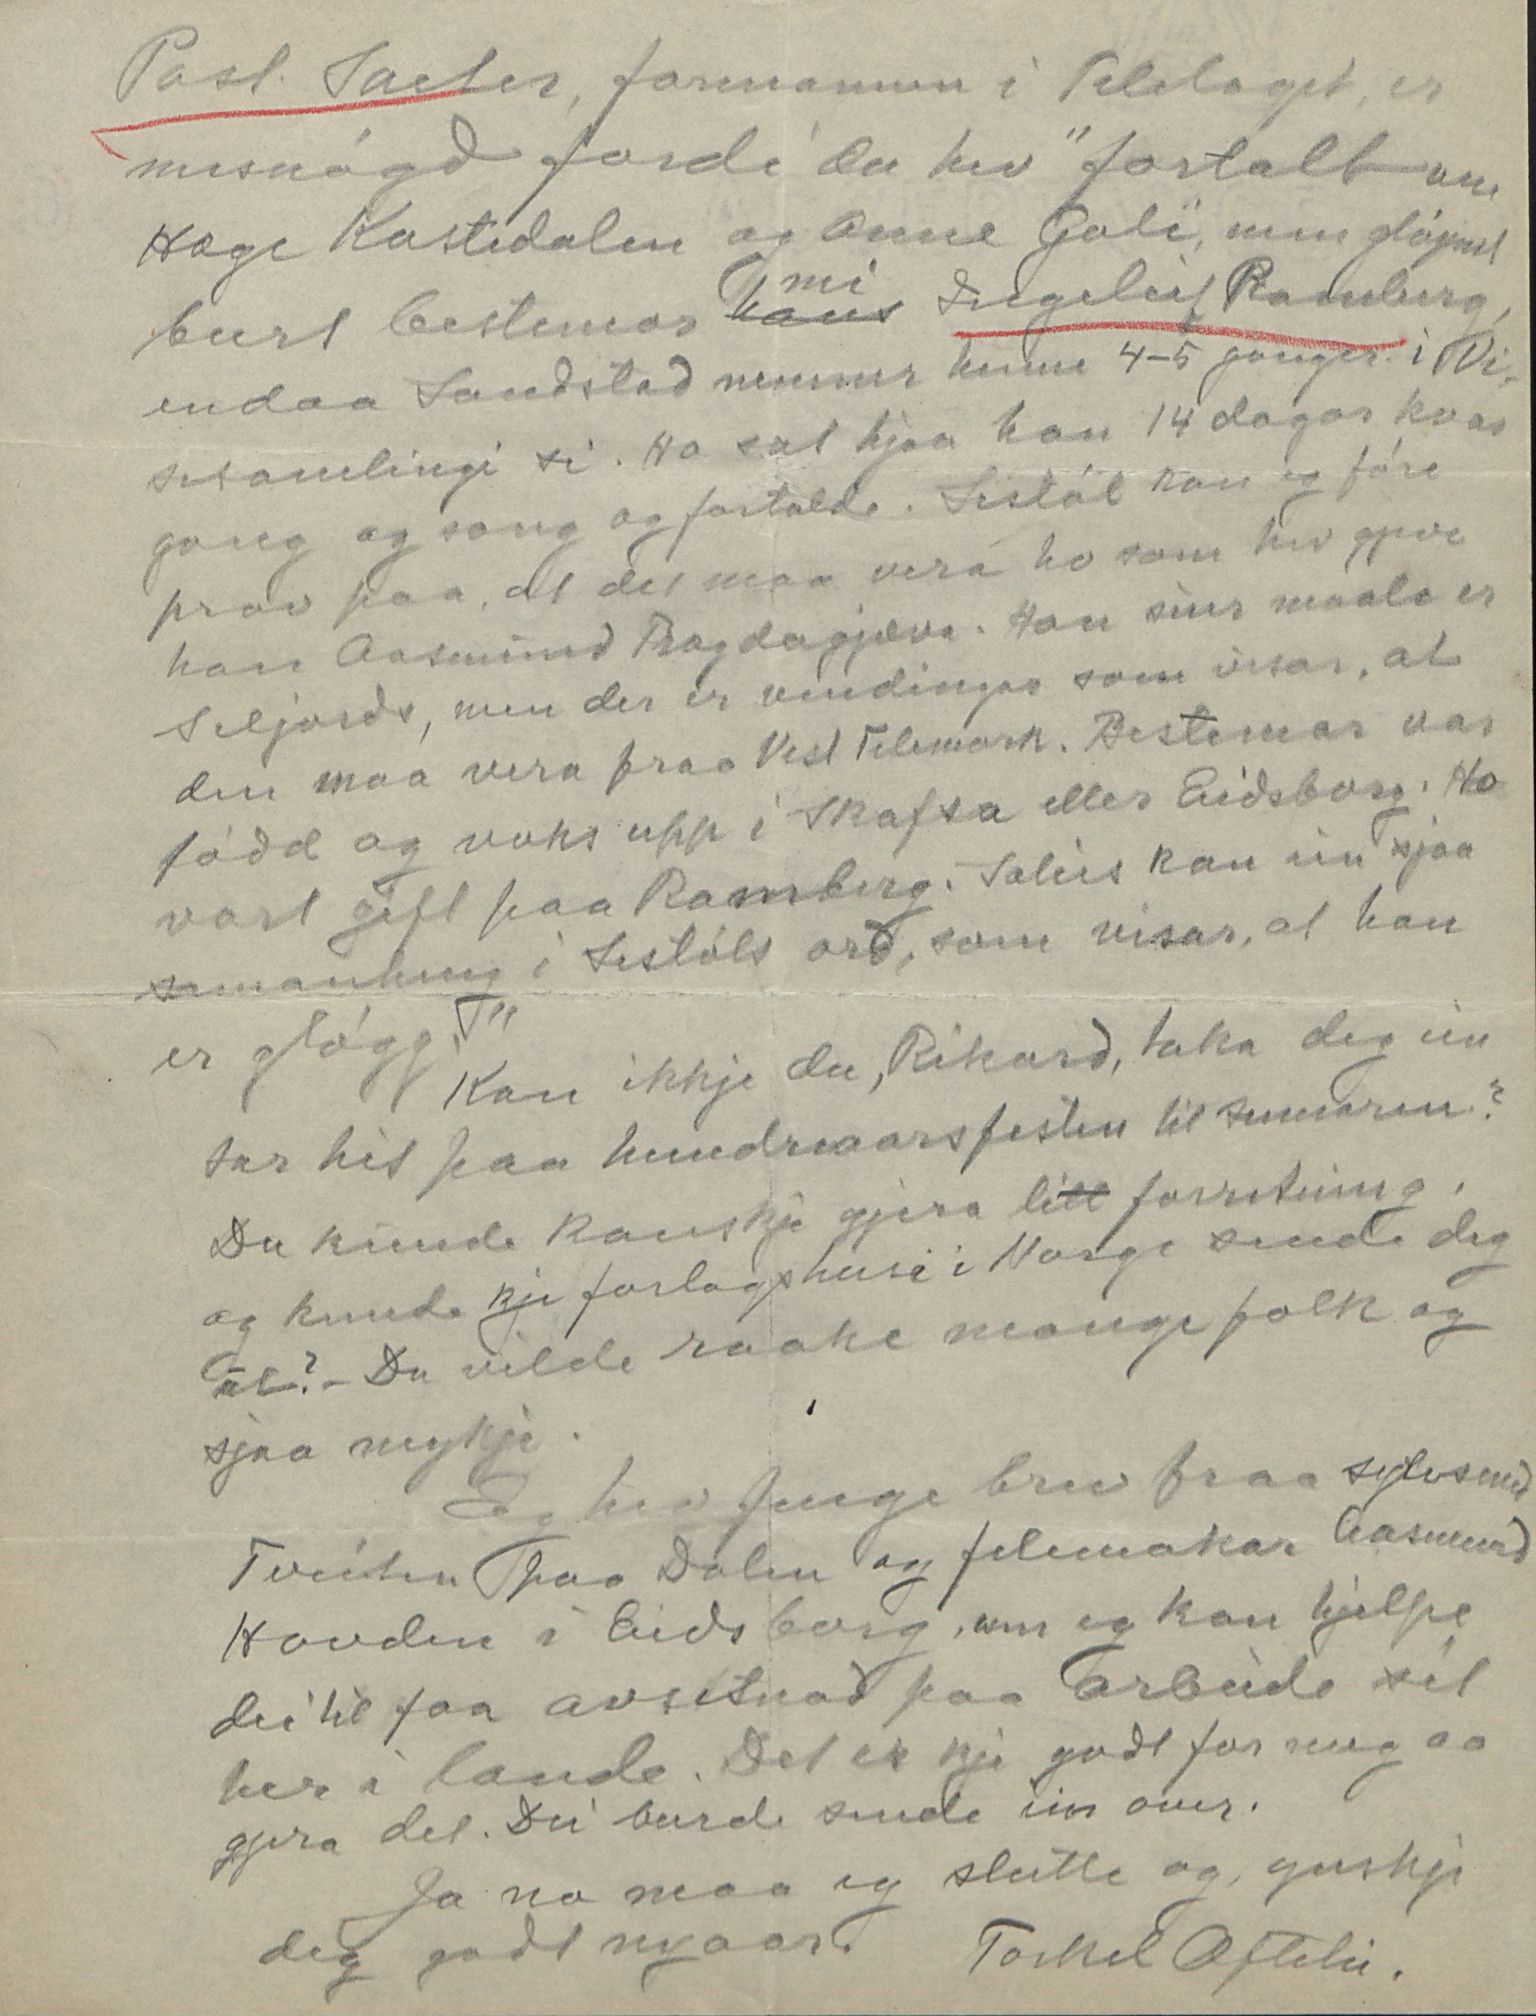 Past. Saeter, formannen i Telelaget, er
misnögd fordi du hev "fortalt um
Hæge Kastedalen og Anne Goli", men gløymt
burt bestemor mi Ingeleiv Ramberg,
endaa Landstad nemner henne 4-5 gonger i Vi-
sesamlingi si. Ho sat hjaa han 14 dagar kvar
gong og song og fortalde. Sistöl kan eg före
prov paa, at det maa vera ho som hev gjeve
han Aasmund Fregdagjæva. Han siers maale er
Seljords, men der er vendingar som visar, at
den maa vera fraa Vest Telemark. Bestemor var
född og voks upp i Skafsa eller Eidsborg. Ho
vart gift paa Ramberg. Soleis kan ein sjaa
samanheng i Sistöls ord, som visar, at han
er glögg."
Kan ikkje du, Rikard, taka deg ein
tur hit paa hundreaarsfesten til sumaren?
Du kunde kanskje gjera litt forretning,
og kunde kje forlagshuse i Norge sende deg
ut? - Du vilde raake mange folk og
sjaa mykje.
Eg hev fenge brev fraa sylvsmed
Tveiten paa Dalen og felemakar Aasmund
Hovden i Eidsborg, um eg kan hjelpe
dei til faa avsetnad paa arbeide sit
her i lande. Det er kje godt for meg aa
gjera det. Dei burde sende ein over.
Ja no maa eg slutte og ynskje
deg godt nyaar. Torkel Oftelie.